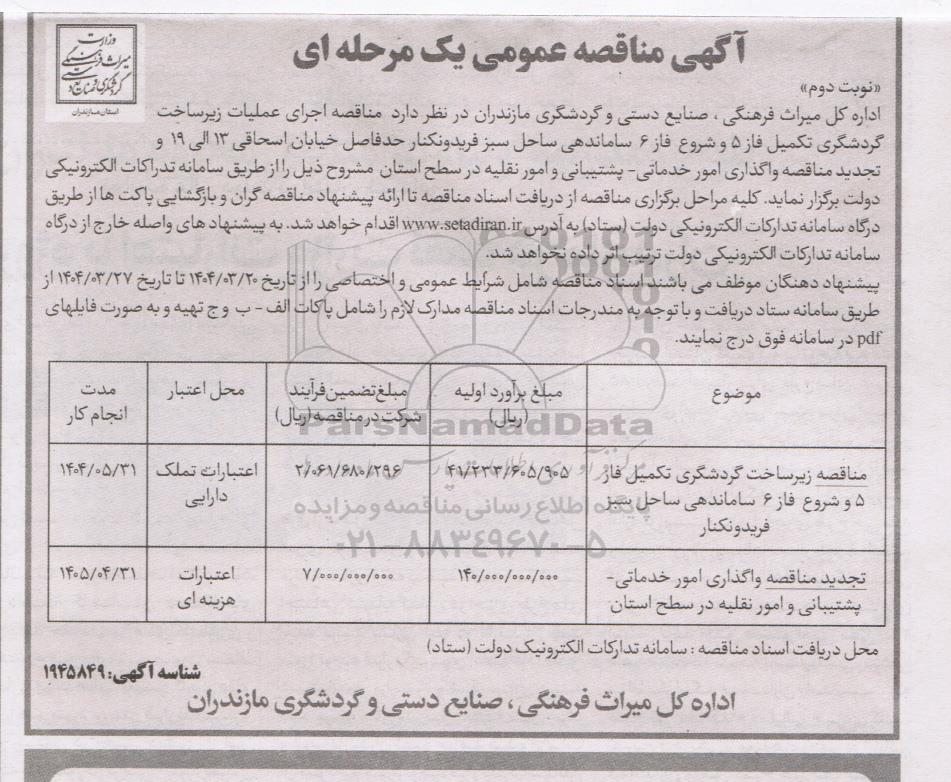 وزارت
میراث فرهنگی
گردشگری و صنایع دستی
استان مازندران
آگهی مناقصه عمومی یک مرحله ای
«نوبت دوم»
اداره کل میراث فرهنگی ، صنایع دستی و گردشگری مازندران در نظر دارد مناقصه اجرای عملیات زیرساخت
گردشگری تکمیل فاز ۵ و شروع فاز ۶ ساماندهی ساحل سبز فریدونکنار حدفاصل خیابان اسحاقی ۱۳ الی ۱۹ و
تجدید مناقصه واگذاری امور خدماتی- پشتیبانی و امور نقلیه در سطح استان مشروح ذیل را از طریق سامانه تدراکات الکترونیکی
دولت برگزار نماید. کلیه مراحل برگزاری مناقصه از دریافت اسناد مناقصه تا ارائه پیشنهاد مناقصه گران و بازگشایی پاکت ها از طریق
درگاه سامانه تدارکات الکترونیکی دولت (ستاد) به آدرس www.setadiran.ir اقدام خواهد شد. به پیشنهاد های واصله خارج از درگاه
سامانه تدارکات الکترونیکی دولت ترتیب اثر داده نخواهد شد.
پیشنهاد دهنگان موظف می باشند اسناد مناقصه شامل شرایط عمومی و اختصاصی را از تاریخ ۱۴۰۴/۰۳/۲۰ تا تاریخ ۱۴۰۴/۰۳/۲۷ از
طریق سامانه ستاد دریافت و با توجه به مندرجات اسناد مناقصه مدارک لازم را شامل پاکات الف - ب و ج تهیه و به صورت فایلهای
pdf در سامانه فوق درج نمایند.
موضوع
مبلغ برآورد اولیه
(ریال)
مبلغ تضمین فرآیند
شرکت در مناقصه (ریال)
محل اعتبار
مدت
انجام کار
مناقصه زیرساخت گردشگری تکمیل فاز
۵ و شروع فاز ۶ ساماندهی ساحل سبز
فریدونکنار
۴۱/۲۳۳/۶۰۵/۹۰۵
۲/۰۶۱/۶۸۰/۲۹۶
اعتبارات تملک
دارایی
۱۴۰۴/۰۵/۳۱
تجدید مناقصه واگذاری امور خدماتی-
پشتیبانی و امور نقلیه در سطح استان
۱۴۰/۰۰۰/۰۰۰/۰۰۰
۷/۰۰۰/۰۰۰/۰۰۰
اعتبارات
هزینه ای
۱۴۰۵/۰۴/۳۱
ParsNamadData
پایگاه اطلاع رسانی مناقصه و مزایده
۰۲۱-۸۸۳۴۹۶۷۰-۵
محل دریافت اسناد مناقصه : سامانه تدارکات الکترونیک دولت (ستاد)
شناسه آگهی: ۱۹۴۵۸۴۹
اداره کل میراث فرهنگی ، صنایع دستی و گردشگری مازندران